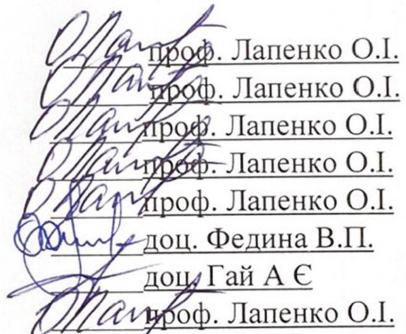 проф. Лапенко О.І.
проф. Лапенко О.І.
проф. Лапенко О.І.
проф. Лапенко О.І.
проф. Лапенко О.І.
доц. Федина В.П.
доц. Гай А Є
проф. Лапенко О.І.